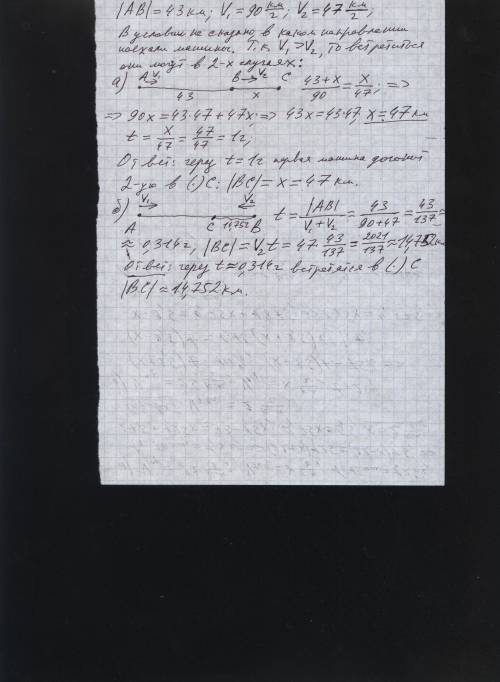 |AB| = 43 км; V₁ = 90 км/г; V₂ = 47 км/г;
В условии не сказано в каком направлении
поехали машины. Т.к. V₁ > V₂, то встретиться
они могут в 2-х случаях:
а) A V₁ B V₂ C (43+x)/90 = x/47; =>
43 x
=> 90x = 43·47 + 47x => 43x = 43·47; x = 47 км
t = x/47 = 47/47 = 1г;
Ответ: через t = 1г первая машина догонит
2-ую в (·) C: |BC| = x = 47 км.
б) V₁ V₂ t = |AB|/(V₁+V₂) = 43/(90+47) = 43/137 ≈
A C 14,752 B
≈ 0,314г, |BC| = V₂t = 47·43/137 = 2021/137 ≈ 14,752км
Ответ: через t ≈ 0,314г встретятся в (·) C
|BC| ≈ 14,752 км.